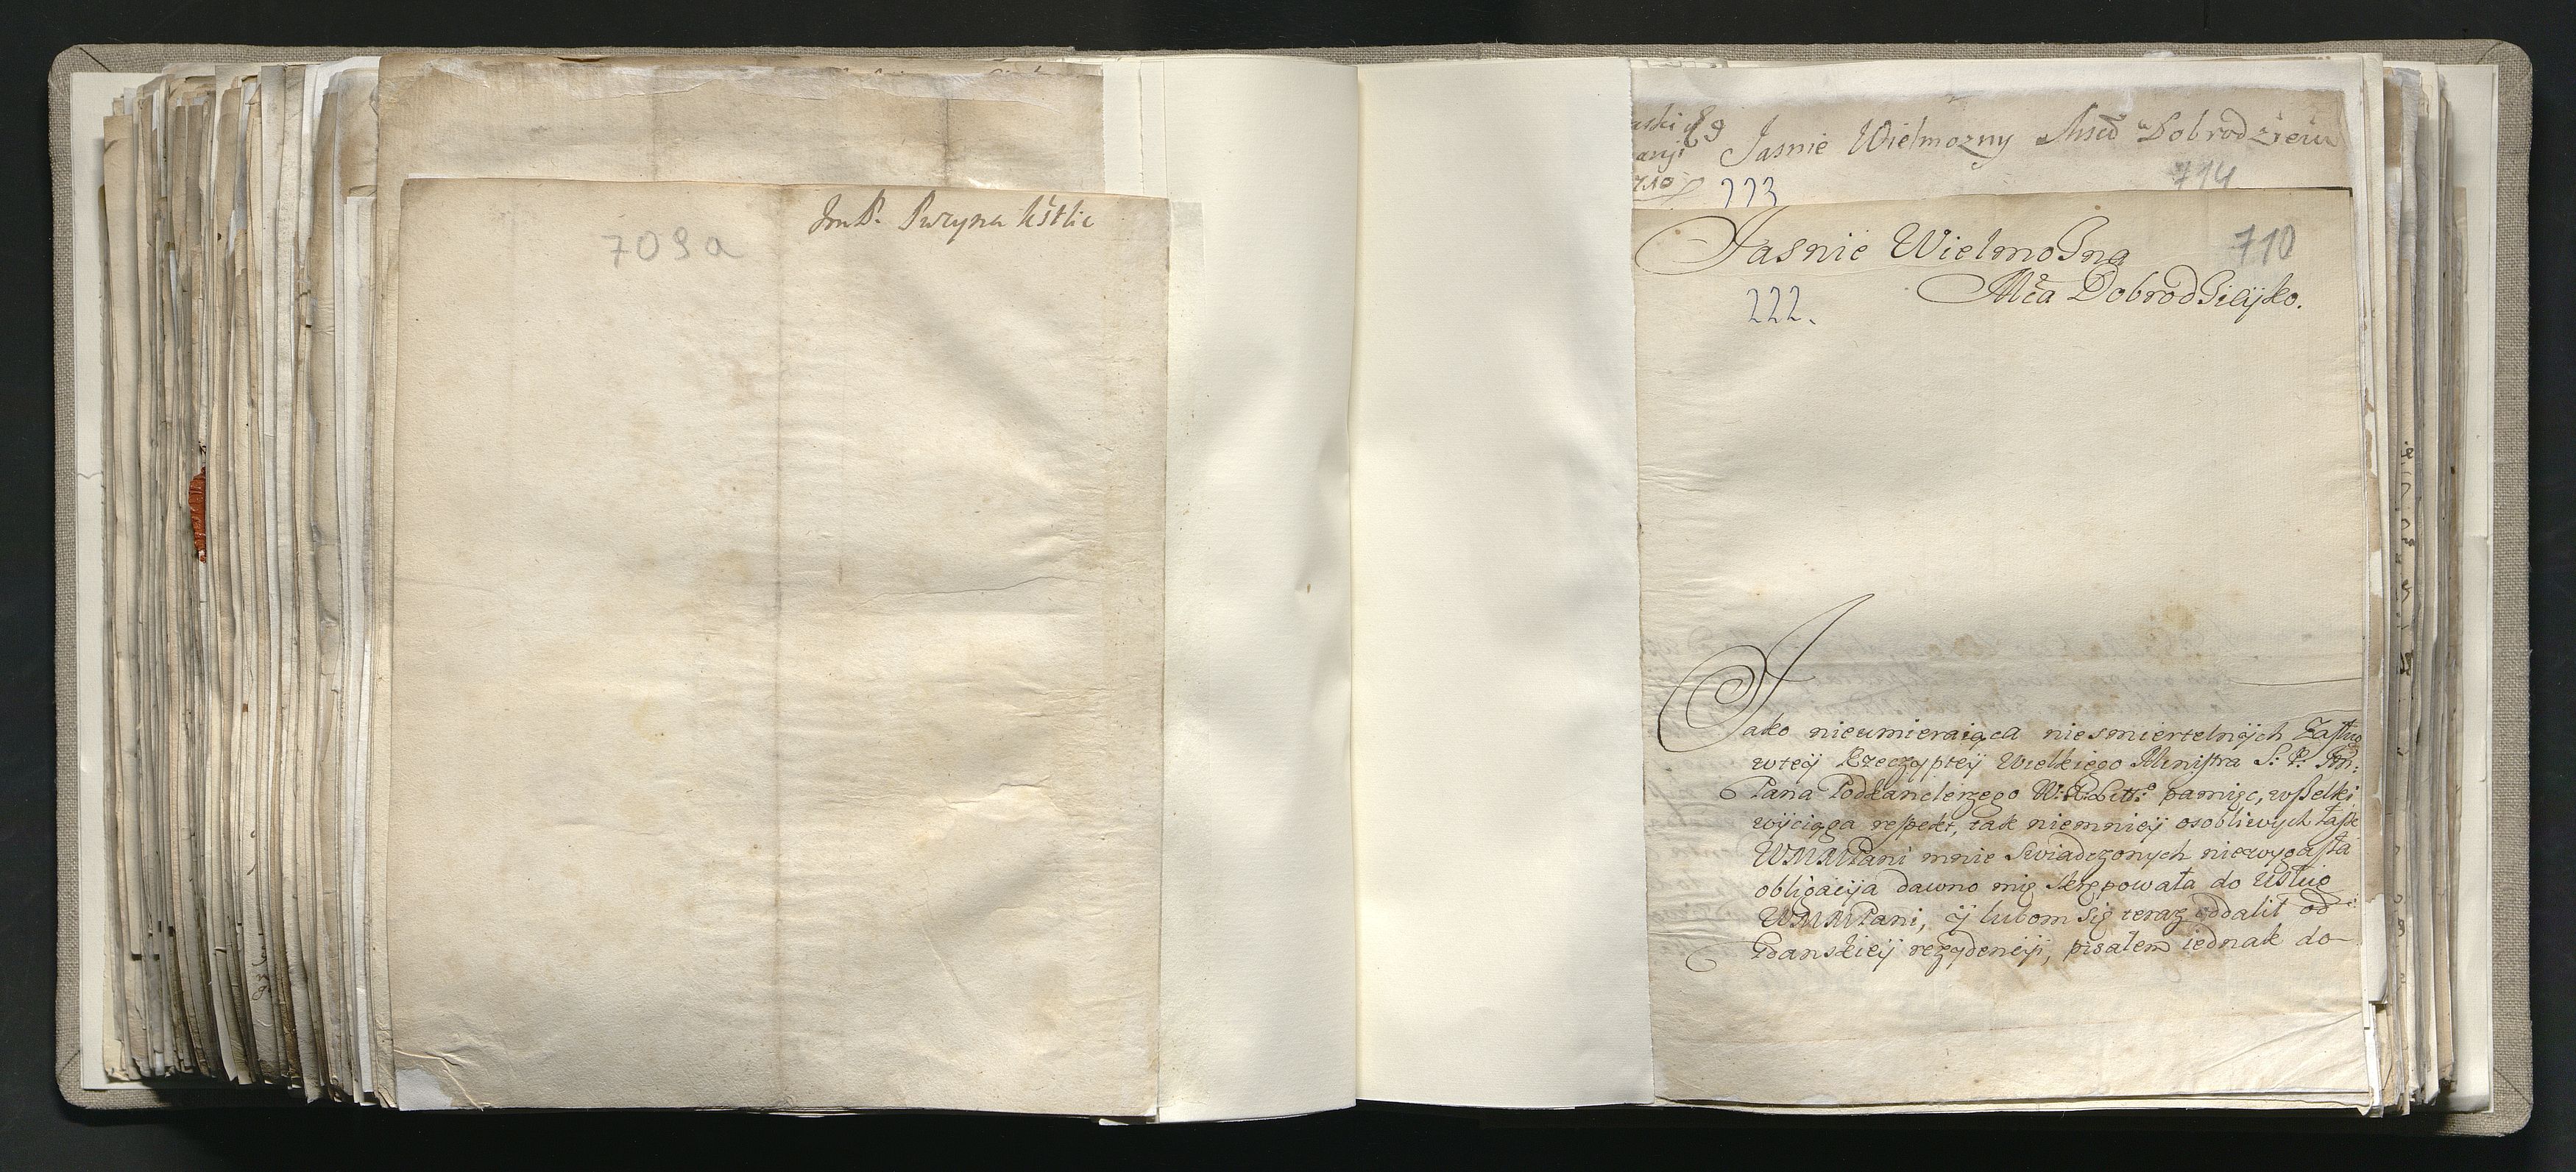 709a
Jm P. Puzyna
aski
Jasnie Wielmozny Mscᵂ Dobrodzieiu
anji
710
223
714
Jasnie Wielmożna
710
Mća Dobrodżiijko.
222.
Jako nieumieraiąca niesmiertelnÿch Zasług
wteÿ Rzeczyptey Wielkiego Ministra S: P: Jm:
Pana Podkanclerzego W: X: Litt: pamięc, wszelki
wÿciąga respekt, tak niemnieÿ osobliwych łask
WMMPani mnie swiadczonych niewygasła
obligacÿa dawno mię skrępowała do Usług
WMMPani, ÿ lubom się teraz oddalił od
Gdanskieÿ rezÿdencÿi, pisałem iednak do